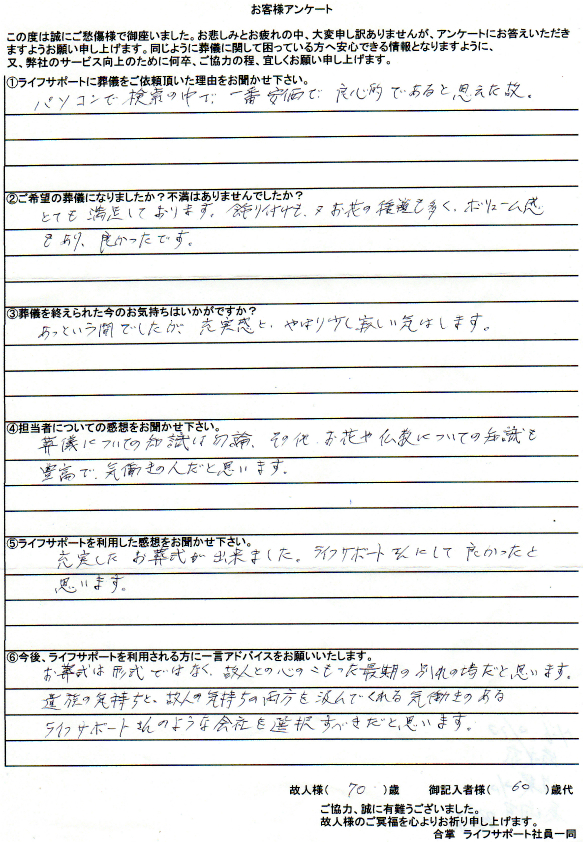 お客様アンケート
この度は誠にご愁傷様で御座いました。お悲しみとお疲れの中、大変申し訳ありませんが、アンケートにお答えいただき
ますようお願い申し上げます。同じように葬儀に関して困っている方へ安心できる情報となりますように、
又、弊社のサービス向上のために何卒、ご協力の程、宜しくお願い申し上げます。
①ライフサポートに葬儀をご依頼頂いた理由をお聞かせ下さい。
パソコンで検索の中で、一番安価で良心的であると思えた故。
②ご希望の葬儀になりましたか？不満はありませんでしたか？
とても満足しております。飾り付けも、又お花の種類も多く、ボリューム感
もあり、良かったです。
③葬儀を終えられた今のお気持ちはいかがですか？
あっという間でしたが、充実感と、やはり少し寂しい気はします。
④担当者についての感想をお聞かせ下さい。
葬儀についての知識は勿論、その他、お花や仏教についての知識も
豊富で、気働きの人だと思います。
⑤ライフサポートを利用した感想をお聞かせ下さい。
充実したお葬式が出来ました。ライフサポートさんにして良かったと
思います。
⑥今後、ライフサポートを利用される方に一言アドバイスをお願いいたします。
お葬式は形式ではなく、故人との心のこもった最期の別れの場だと思います。
遺族の気持ちと、故人の気持ちの両方を汲んでくれる気働きのある
ライフサポートさんのような会社を選択すべきだと思います。
故人様（ 70 ）歳　御記入者様（ 60 ）歳代
ご協力、誠に有難うございました。
故人様のご冥福を心よりお祈り申し上げます。
合掌　ライフサポート社員一同